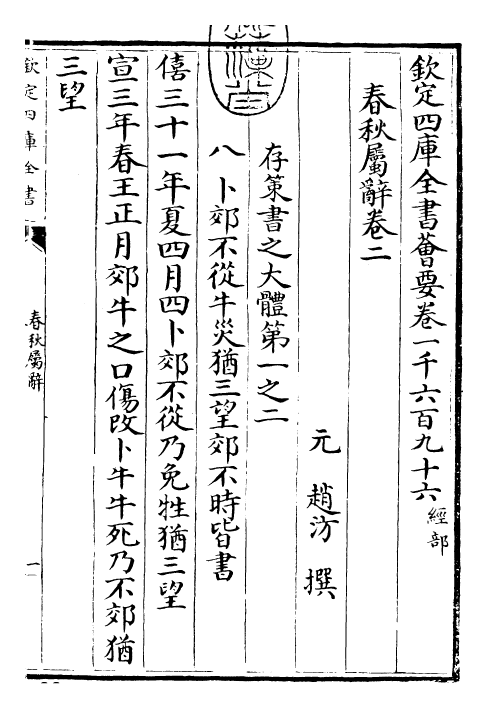 欽定四庫全書薈要卷一千六百九十六 經部
春秋屬辭卷二
元 趙汸 撰
存策書之大體第一之二
八 卜郊不從牛災猶三望郊不時皆書
僖三十一年夏四月四卜郊不從乃免牲猶三望
宣三年春王正月郊牛之口傷改卜牛牛死乃不郊猶
三望
欽定四庫全書
春秋屬辭
一